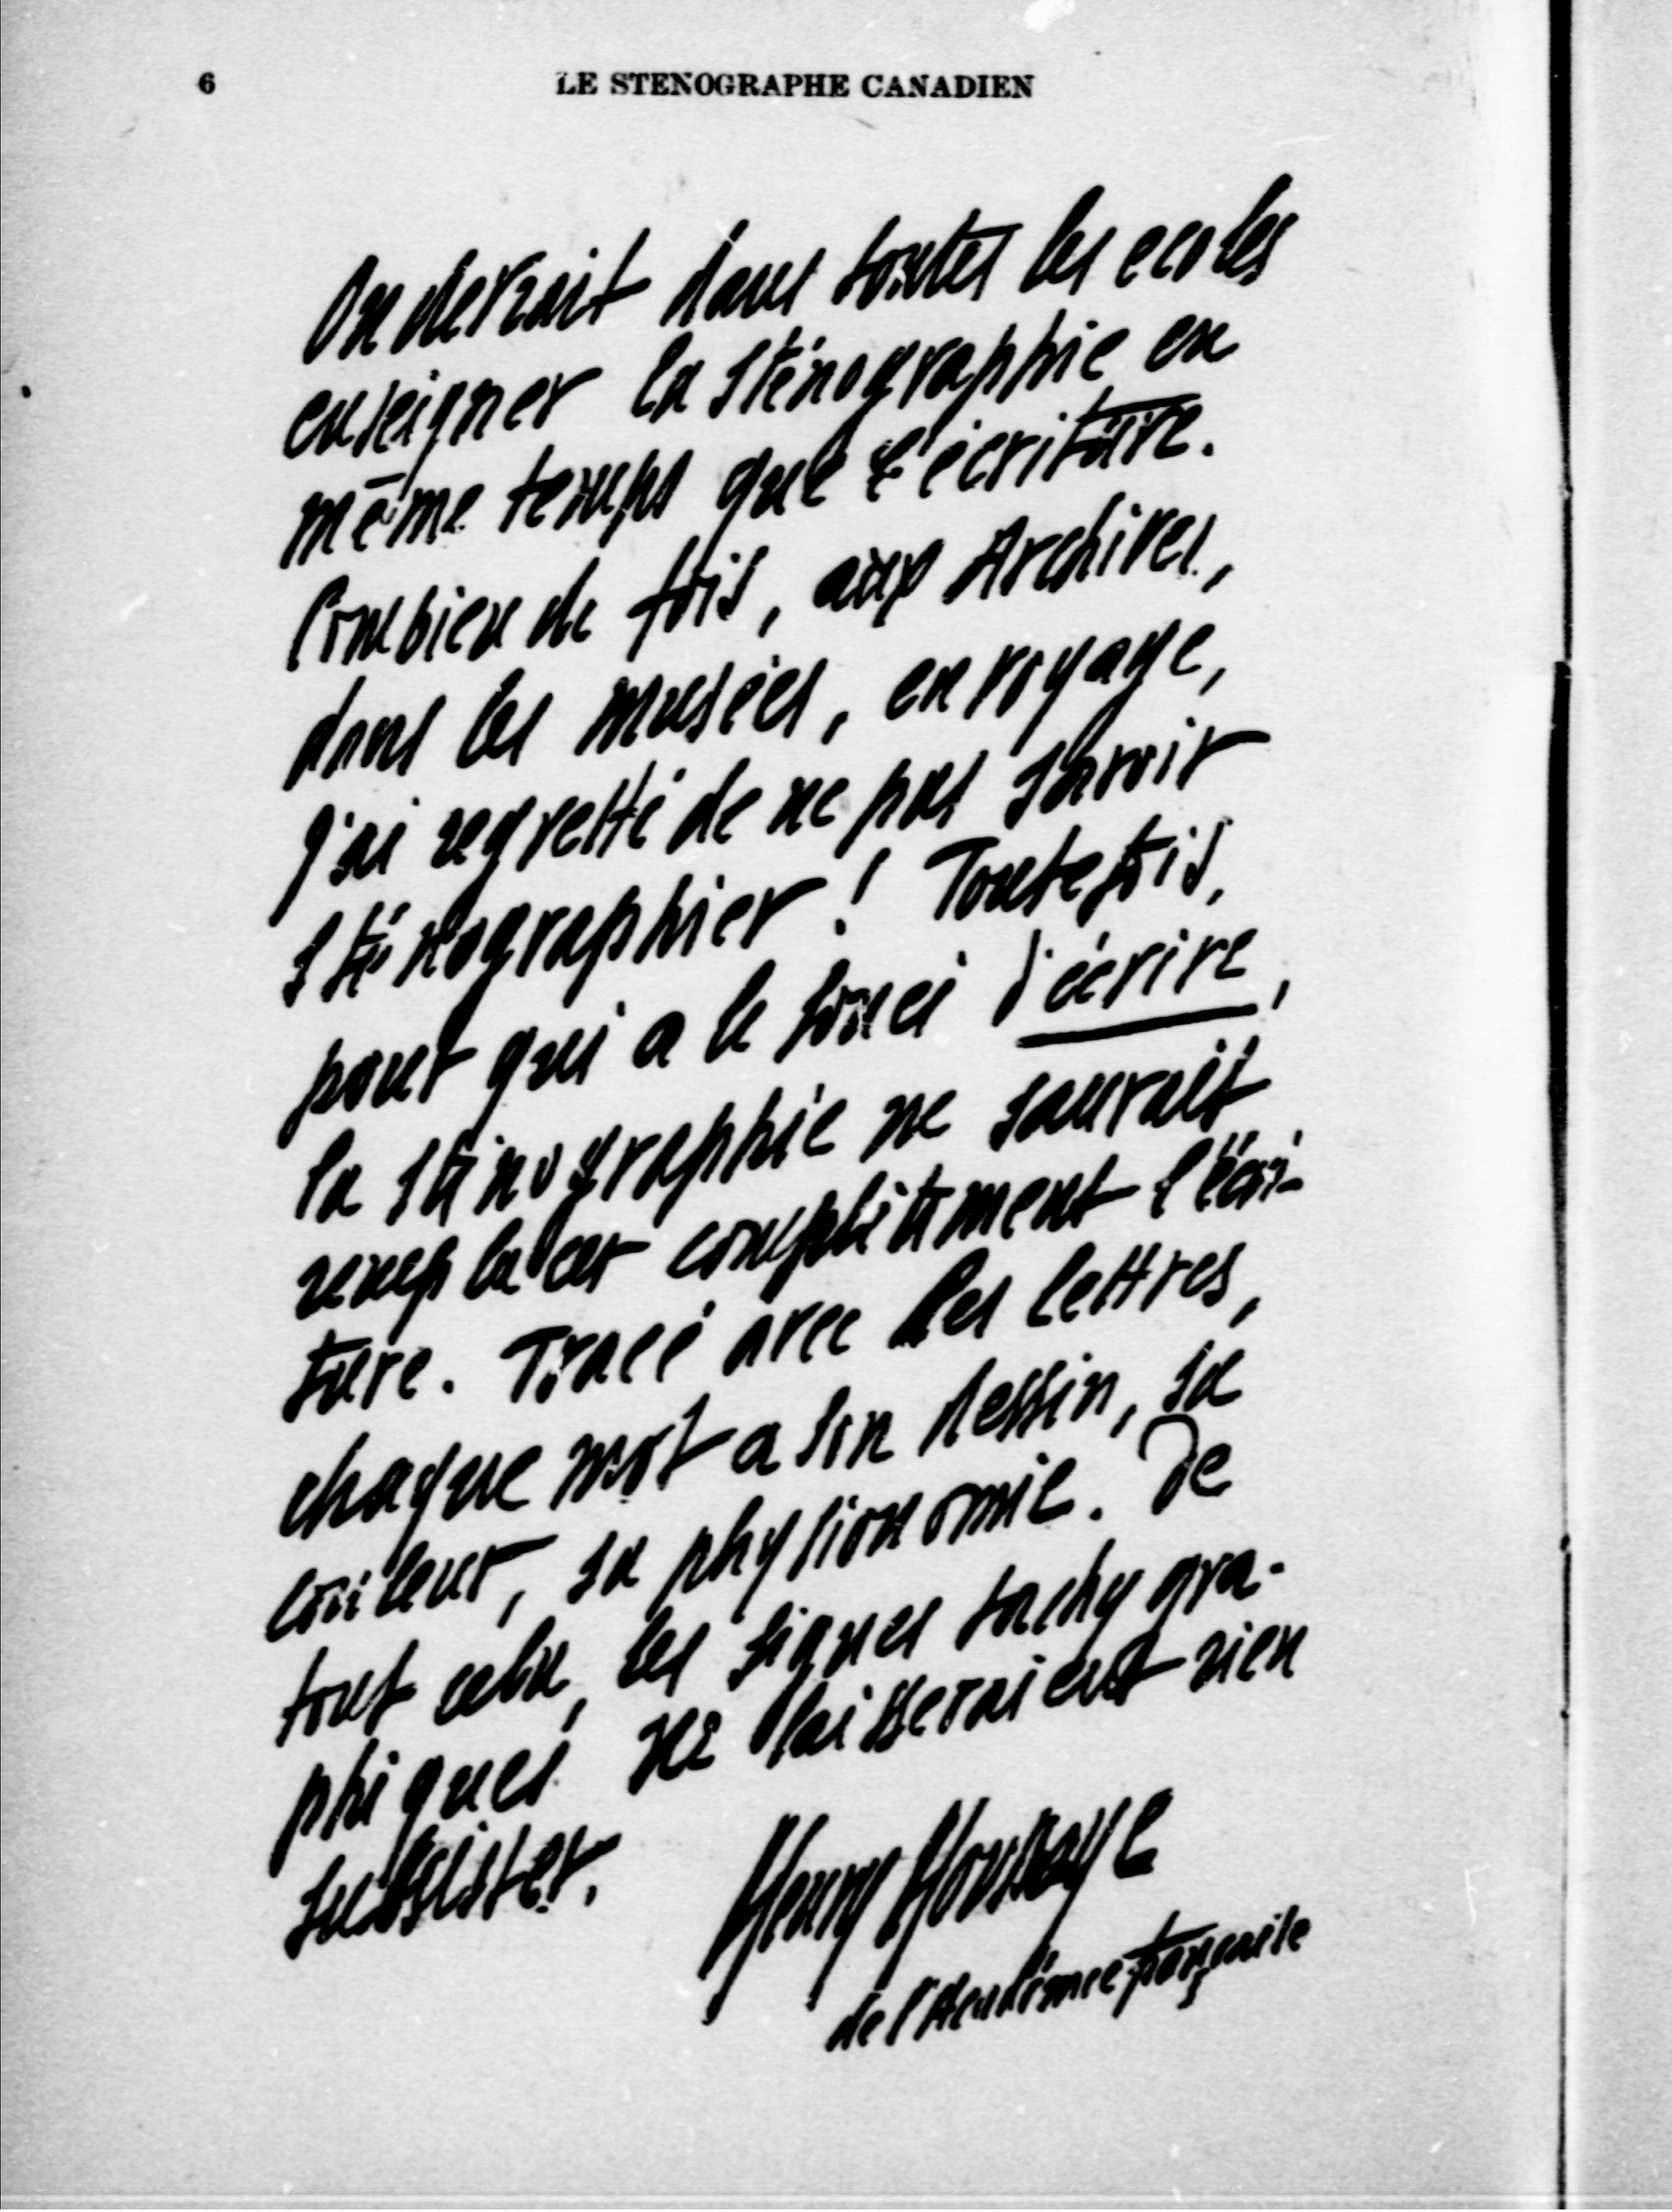 6
LE STENOGRAPHE CANADIEN
On devrait dans toutes les ecoles
enseigner la sténographie en
même temps que l'écriture.
Combien de fois, aux Archives,
dans les musées, en voyage,
j'ai regretté de ne pas savoir
sténographier ! Toutefois,
pour qui a le souci d'écrire,
la sténographie ne saurait
remplacer complètement l'écri-
ture. Tracé avec des lettres,
chaque mot a son dessin, sa
couleur, sa physionomie. De
tout cela, les signes tachygra-
phiques ne laisseraient rien
subsister.
Henry Houssaye
de l'Académie française